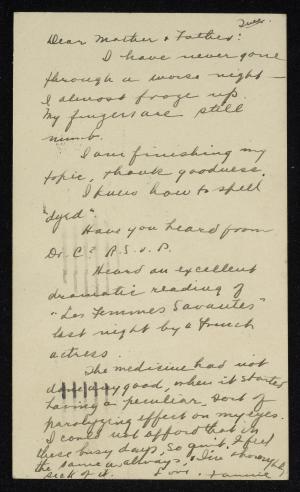 Tues.
Dear Mother & Father:
I have never gone
through a worse night —
I almost froze up.
My fingers are still
numb.
I am finishing my
topic, thank goodness.
I knew how to spell
"dyed".
Have you heard from
Dr. C? R.S.V.P.
Heard an excellent
dramatic reading of
"Les Femmes Savantes"
last night by a French
actress.
The medicine had not
done any good, when it started
having a peculiar sort of
paralyzing effect on my eyes.
I could not afford that in
these busy days, So quit, I feel
the same as always, & I'm thoroughly
sick of it. Love, Fannie